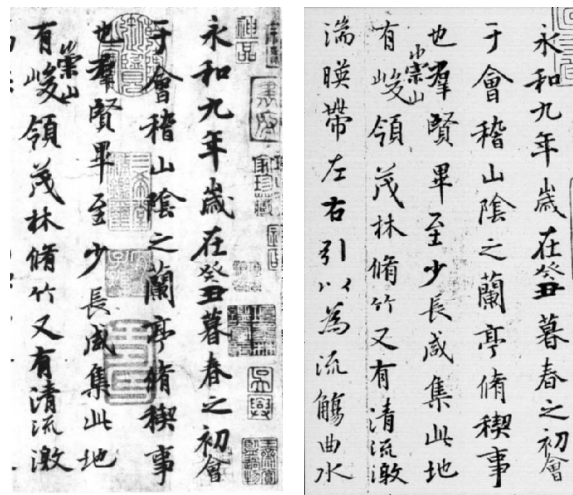 永和九年歲在癸丑暮春之初會
于會稽山陰之蘭亭脩稧事
也羣賢畢至少長咸集此地
有崇山峻領茂林脩竹又有清流激
永和九年歲在癸丑暮春之初會
于會稽山陰之蘭亭脩稧事
也羣賢畢至少長咸集此地
有崇山峻領茂林脩竹又有清流激
湍暎帶左右引以為流觴曲水